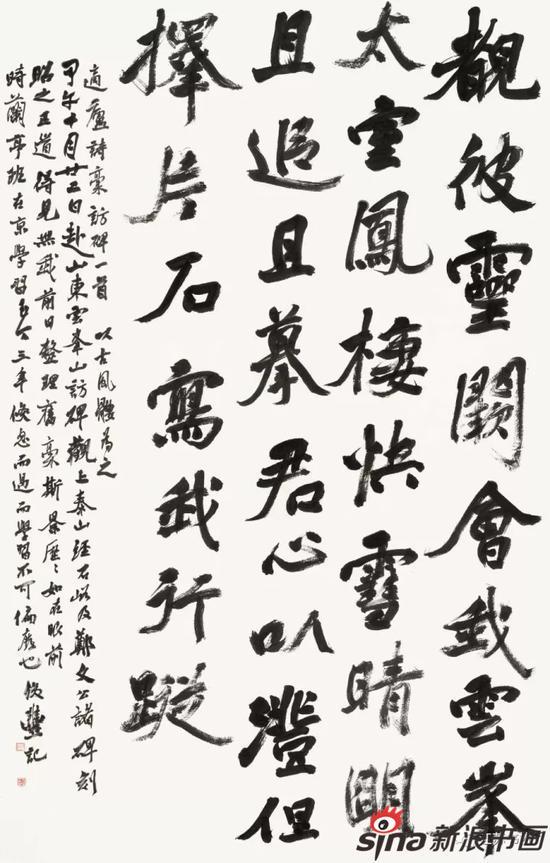 觀彼靈闕會我雲峯
太室鳳棲快雪晴明
且追且摹君心以澄但
擇片石寫我行蹤
適廬詩稾訪碑一首 以古風體為之
甲午十月廿三日赴山東雲峯山訪碑觀上泰山經石峪及鄭文公諸碑刻
昭之至道得見無我前日整理舊稾斯景歷〻如在眼前
時蘭亭班在京學習 三年倏忽而過而學習不可偏廢也 俊 記
sina 新浪书画